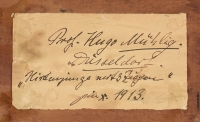 Prof. Hugo Mühlig.
Düsseldorf.
"Hirtenjunge mit 3 Ziegen"
1913.